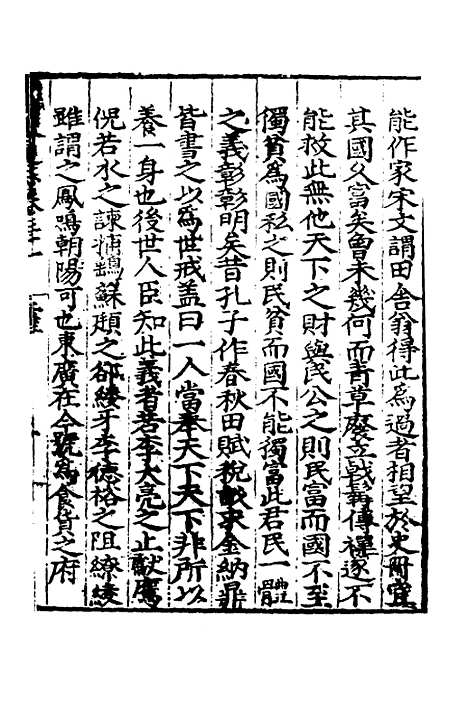 能作家宋文謂田舍翁得此為過者相望於史冊宜
其國久富矣曾未幾何而青草廢立戟髯傳禪遂不
能救此無他天下之財與民公之則民富而國不至
獨貧為國私之則民貧而國不能獨富此君民一體
之義彰彰明矣昔孔子作春秋田賦稅畝求金納鼎
皆書之以為世戒盖曰一人當奉天下天下非所以
養一身也後世人臣知此義者若李大亮之止獻鷹
倪若水之諫捕鵁蘇頲之卻緀牙李德裕之阻繚綾
雖謂之鳳鳴朝陽可也東廣在今號為食貨之府